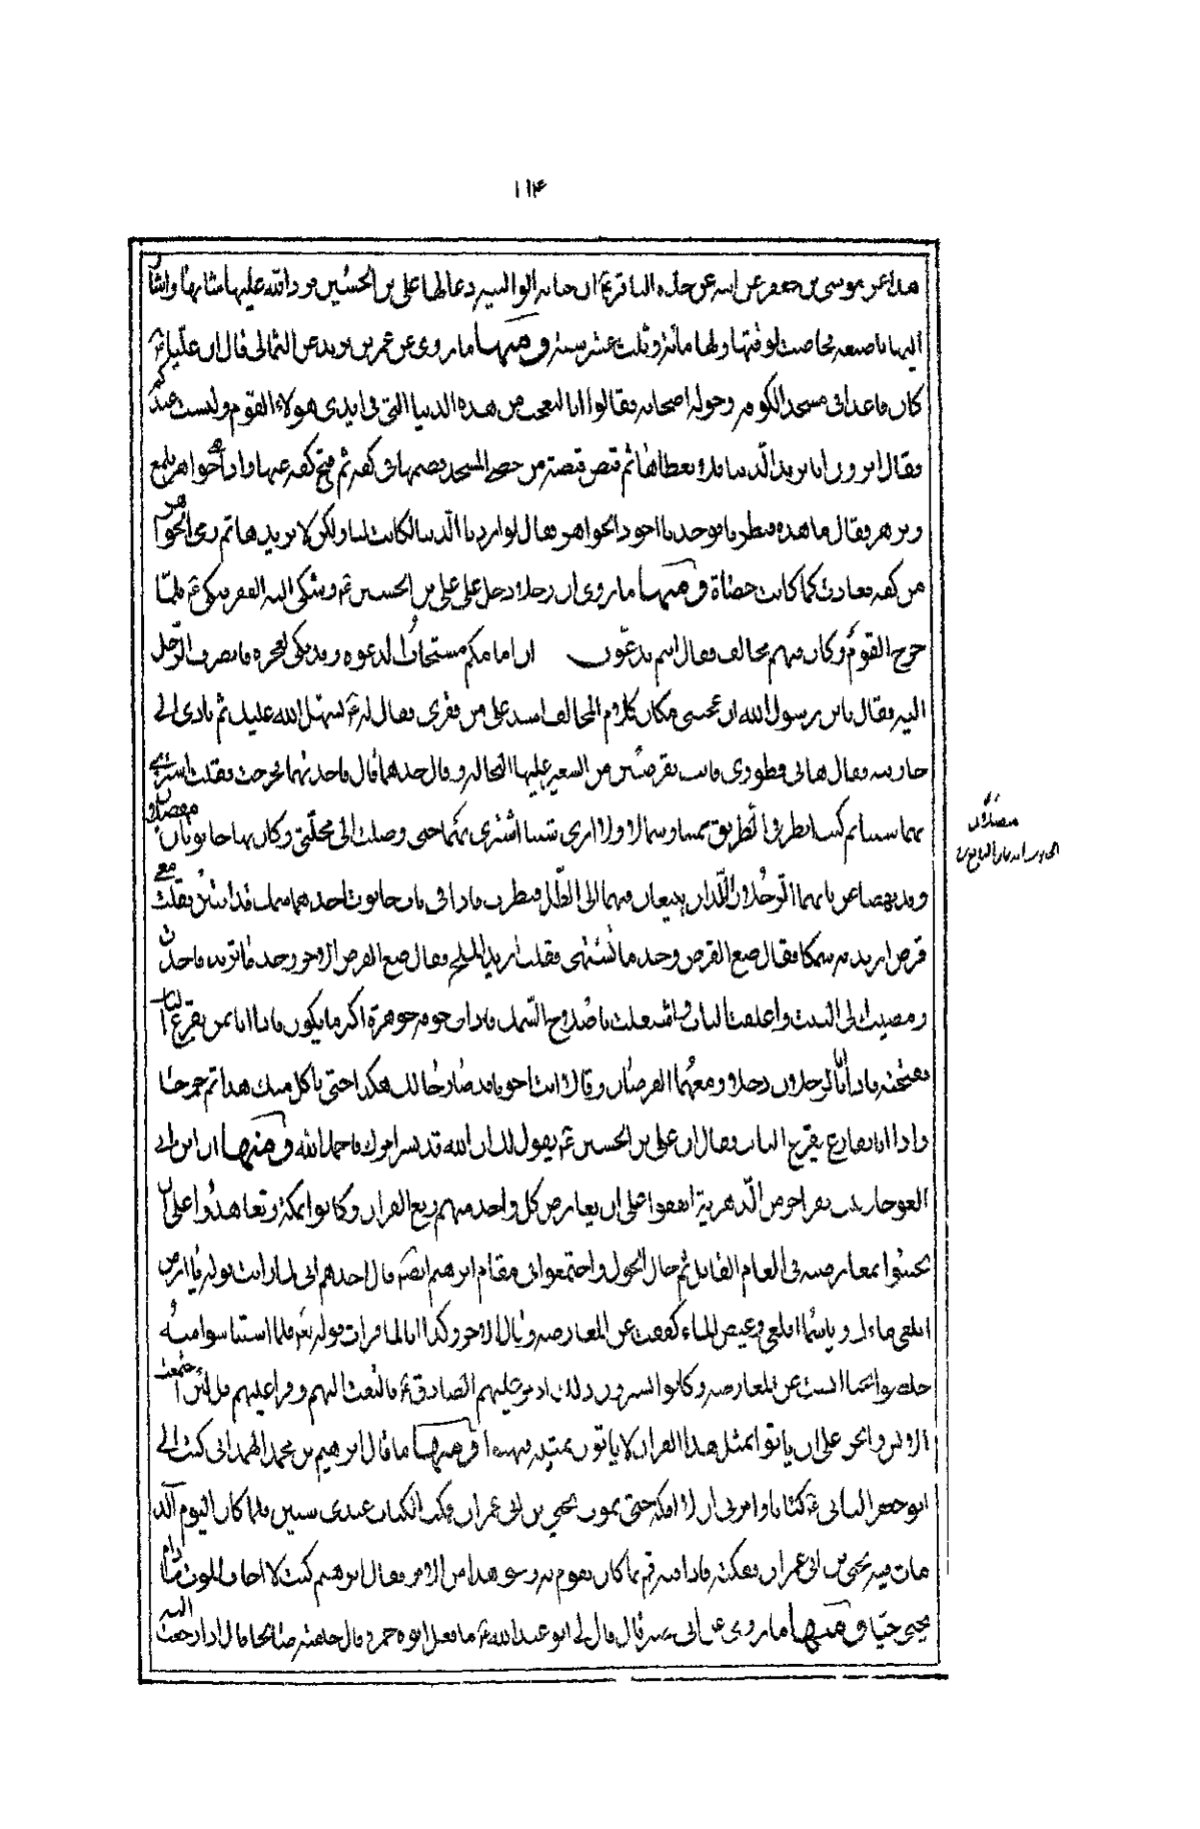 ١١۴
هذا عن موسى بن جعفر عن ابيه عن جده الباقر ع ان حبابة الوالبية دعا لها على بن الحسين فرد الله عليها شبابها واشار
اليها باصبعه فحاضت لوقتها ولها مائة وثلث عشر سنة ومنها ما روى عن عمر بن يزيد عن الثمالى قال ان عليا ع
كان قاعدا فى مسجد الكوفة وحوله اصحابه فقالوا انا لنعجب من هذه الدنيا التى فى ايدى هولاء القوم وليست عندكم
فقال اترون انا نريد الدنيا فلا نعطاها ثم قبض قبضة من حصى المسجد فضمها فى كفه ثم فتح كفه عنها واذا جواهر تلمع
وتزهر فقال ما هذه فنظرنا فوجدنا اجود الجواهر فقال لو اردنا الدنيا لكانت لنا ولكن لا نريدها ثم رمى الجواهر
من كفه فعادت كما كانت حصاة ومنها ما روى ان رجلا دخل على على بن الحسين ع وشكى اليه الفقر فبكى ع فلما
خرج القوم وكان فيهم مخالف فقال انتم تدعون ان امامكم مستجاب الدعوه وقد بكى لعجزه فانصرف الرجل
اليه فقال يابن رسول الله ان محنتى مكان كلام المخالف اشد على من فقرى فقال له ع يسهل الله عليك ثم نادى الى
جاريته فقال هاتى فطورى فاتت بقرصتين من الشعير عليها النخالة وقال خذهما قال فاخذتهما فخرجت وقلت اشترى
بهما شيئا ثم كنت انظر فى الطريق يمينا وشمالا ولا ارى شيئا اشترى بهما حتى وصلت الى محلتى وكان بها حانوتان متصلان
قرص اريد به سمكا فقال ضع القرص وخذ ما تشتهى فقلت اريد الملح فقال ضع القرص الاخر وخذ ما تريد فاخذت
ومضيت الى البيت واغلقت الباب واشتغلت باصلاح السمك فاذا فى جوفه جوهرة اكبر ما يكون فاذا انا بمن يقرع الباب
ففتحته فاذا انا بالرجلان دخلا ومعهما القرصان وقالا انت اخونا قد صار حالك هكذا حتى تاكل مثل هذا ثم خرجا
واذا انا بقارع يقرع الباب وقال ان على بن الحسين ع يقول لك ان الله قد يسر امرك فاحمد الله ومنها ان ابن ابى
العوجا وثلث نفر اخر من الدهرية اتفقوا على ان يعارض كل واحد منهم ربع القران وكانوا بمكة وتعاهدوا على ان
يجيئوا بمعارضته فى العام القابل ثم حال الحول واجتمعوا فى مقام ابرهيم ايضا قال احدهم انى لما رايت قوله يا ارض
ابلعى ماءك ويا سماء اقلعى وغيض الماء كففت عن المعارضه وقال الاخر وكذا انا لما قرات قوله تعا فلما استيئاسوا منه
خلصوا نجيا ايست عن المعارضه وكانوا يسترون ذلك اذ مر عليهم الصادق ع فالتفت اليهم وقرا عليهم قل لئن اجتمعت
الانس والجن على ان ياتوا بمثل هذا القران لا ياتون بمثله فبهتوا ومنها ما قال ابرهيم بن محمد الهمدانى كتب الى
ابو جعفر الثانى ع كتابا وامرنى ان لا افكه حتى يموت يحيى بن ابى عمران فمكث الكتاب عندى سنين فلما كان اليوم الذى
مات فيه يحيى بن ابى عمران ففككته فاذا فيه قم بما كان يقوم به ونحو هذا من الامر فقال ابرهيم كنت لا اخاف الموت ما دام
يحيى حيا ومنها ما روى عن ابى بصير قال قال لى ابو عبد الله ع ما فعل ابو حمزه قال خلفته صالحا قال اذا رجعت اليه
متصلان